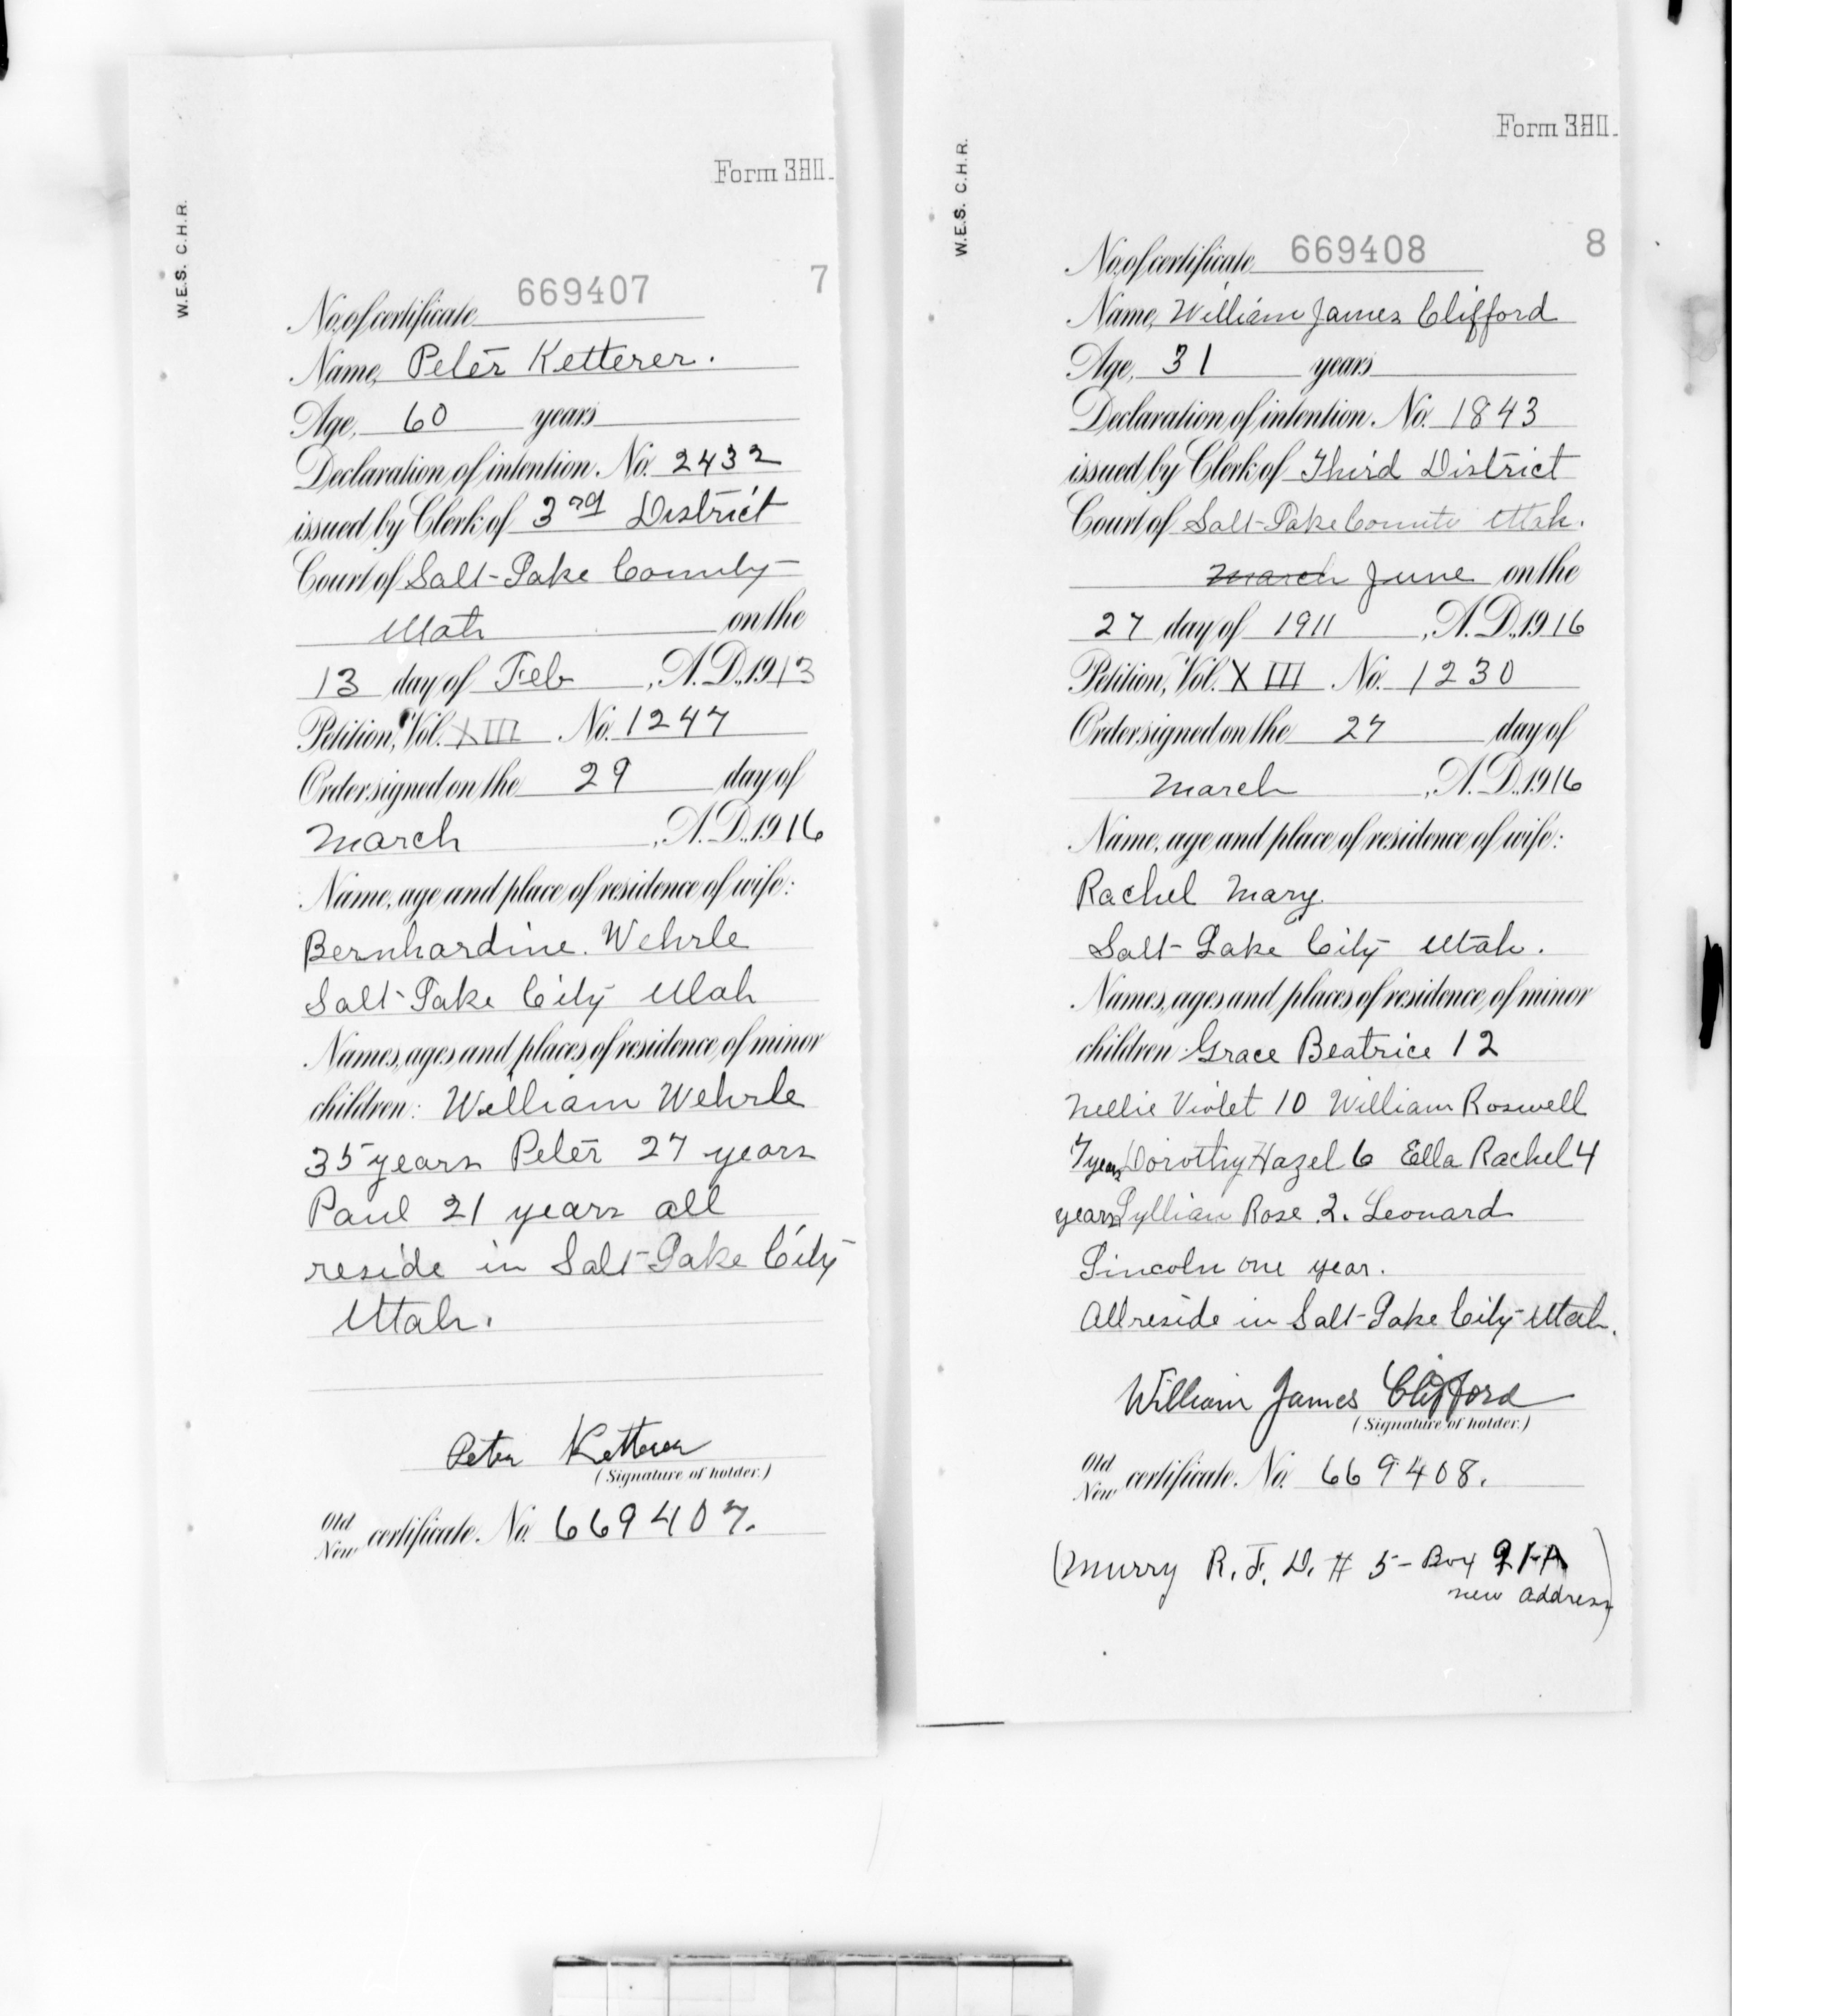 W.E.S. C.H.R.
Form 380.
No. of certificate 669407 7
Name, Peter Ketterer.
Age, 60 years
Declaration of intention. No. 2432
issued by Clerk of 3rd District
Court of Salt-Lake County
Utah on the
13 day of Feb, A.D. 1913
Petition, Vol. XIII No. 1247
Order signed on the 29 day of
March, A.D. 1916
Name, age and place of residence of wife:
Bernhardine. Wehrle
Salt-Lake City Utah
Names, ages and places of residence of minor
children: William Wehrle
35 years Peter 27 years
Paul 21 years all
reside in Salt-Lake City
Utah.
Peter Ketterer
(Signature of holder.)
Old
New certificate. No. 669407.
W.E.S. C.H.R.
Form 380.
No. of certificate 669408 8
Name, William James Clifford
Age, 31 years
Declaration of intention. No. 1843
issued by Clerk of Third District
Court of Salt-Lake County Utah.
March June on the
27 day of 1911, A.D. 1916
Petition, Vol. XIII No. 1230
Order signed on the 27 day of
March, A.D. 1916
Name, age and place of residence of wife:
Rachel Mary.
Salt-Lake City Utah.
Names, ages and places of residence of minor
children Grace Beatrice 12
Nellie Violet 10 William Roswell
7 years Dorothy Hazel 6 Ella Rachel 4
years Lyllian Rose 2. Leonard
Lincoln one year.
All reside in Salt-Lake City Utah.
William James Clifford
(Signature of holder.)
Old
New certificate. No. 669408.
(Murry R.F.D. # 5- Box 91-A
new address)